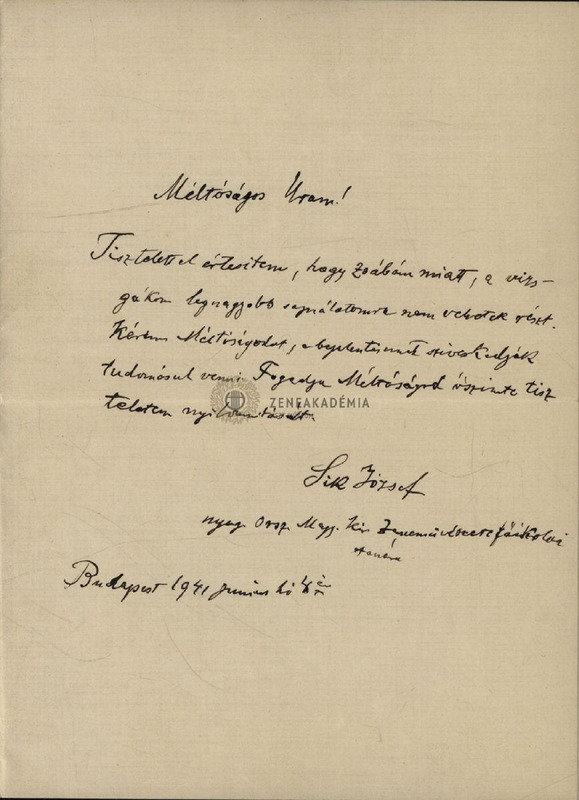 Méltóságos Uram!
Tisztelettel értesitem, hogy zsábám miatt, a vizs-
gákon legnagyobb sajnálatomra nem vehetek részt.
Kérem Méltóságodat, a bejelentésemet sziveskedjék
tudomásul venni. Fogadja Méltóságod őszinte tisz
teletem nyilvánitását.
ZENEAKADÉMIA
Sik József
nyug. Orsz. Magy. Kir. Zeneművészeti főiskolai
tanára
Budapest 1941 junius hó